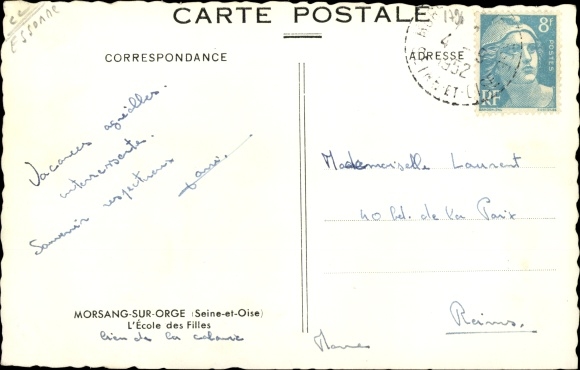 Essonne
CARTE POSTALE
CORRESPONDANCE
ADRESSE
8f
POSTES
RF
1952
SEINE-ET-OISE
Vacances agréables.
Souvenir respectueux
Mademoiselle Laurent
40 bd. de la Paix
Reims.
Marne
MORSANG-SUR-ORGE (Seine-et-Oise)
L'École des Filles
lieu de la colonie